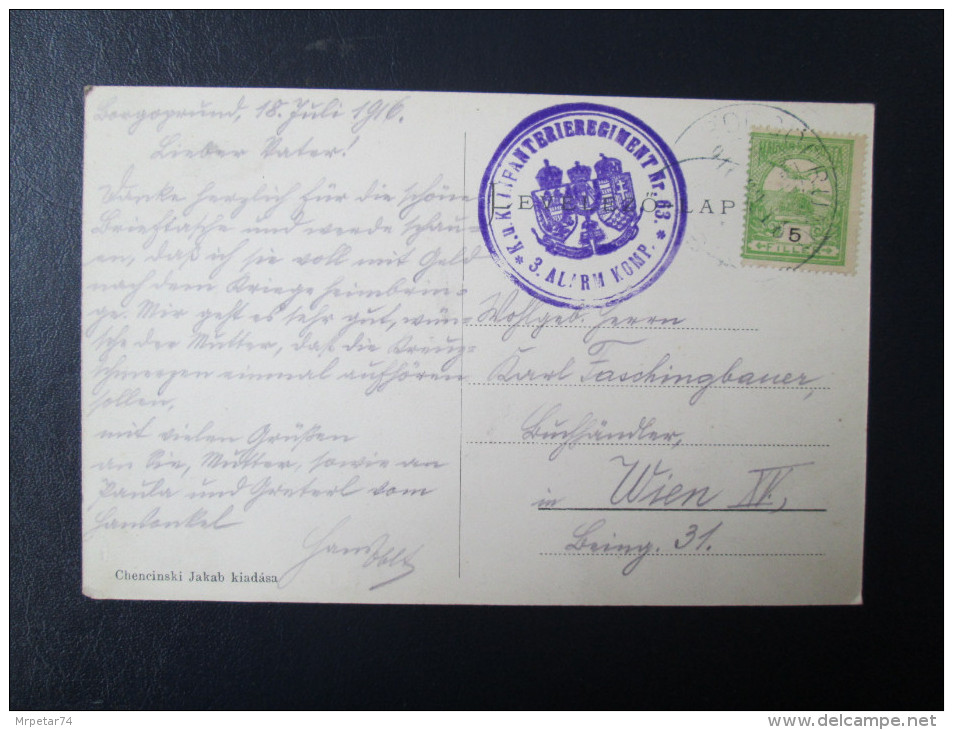 Borgoprund, 18. Juli 1916.
Lieber Vater!
Danke herzlich für die schöne
Brieftasche und werde schau-
en, daß ich sie voll mit Geld
nach dem Kriege heimbrin-
ge. Mir geht es sehr gut, wün-
sche der Mutter, daß die Kreuz-
schmerzen einmal aufhören
sollen.
Mit vielen Grüßen
an Sie, Mutter, sowie an
Paula und Greterl vom
Hansonkel
Hans
Oblt
Chencinski Jakab kiadása
K.u.K. INFANTERIEREGIMENT Nr. 63.
* 3. ALARM KOMP. *
LEVELEZŐ-LAP
MAGYAR
5
FILLÉR
Wohlgeb. Herrn
Karl Faschingbauer,
Buchhändler,
in Wien IV.,
31.
Mrpetar74
www.delcampe.net